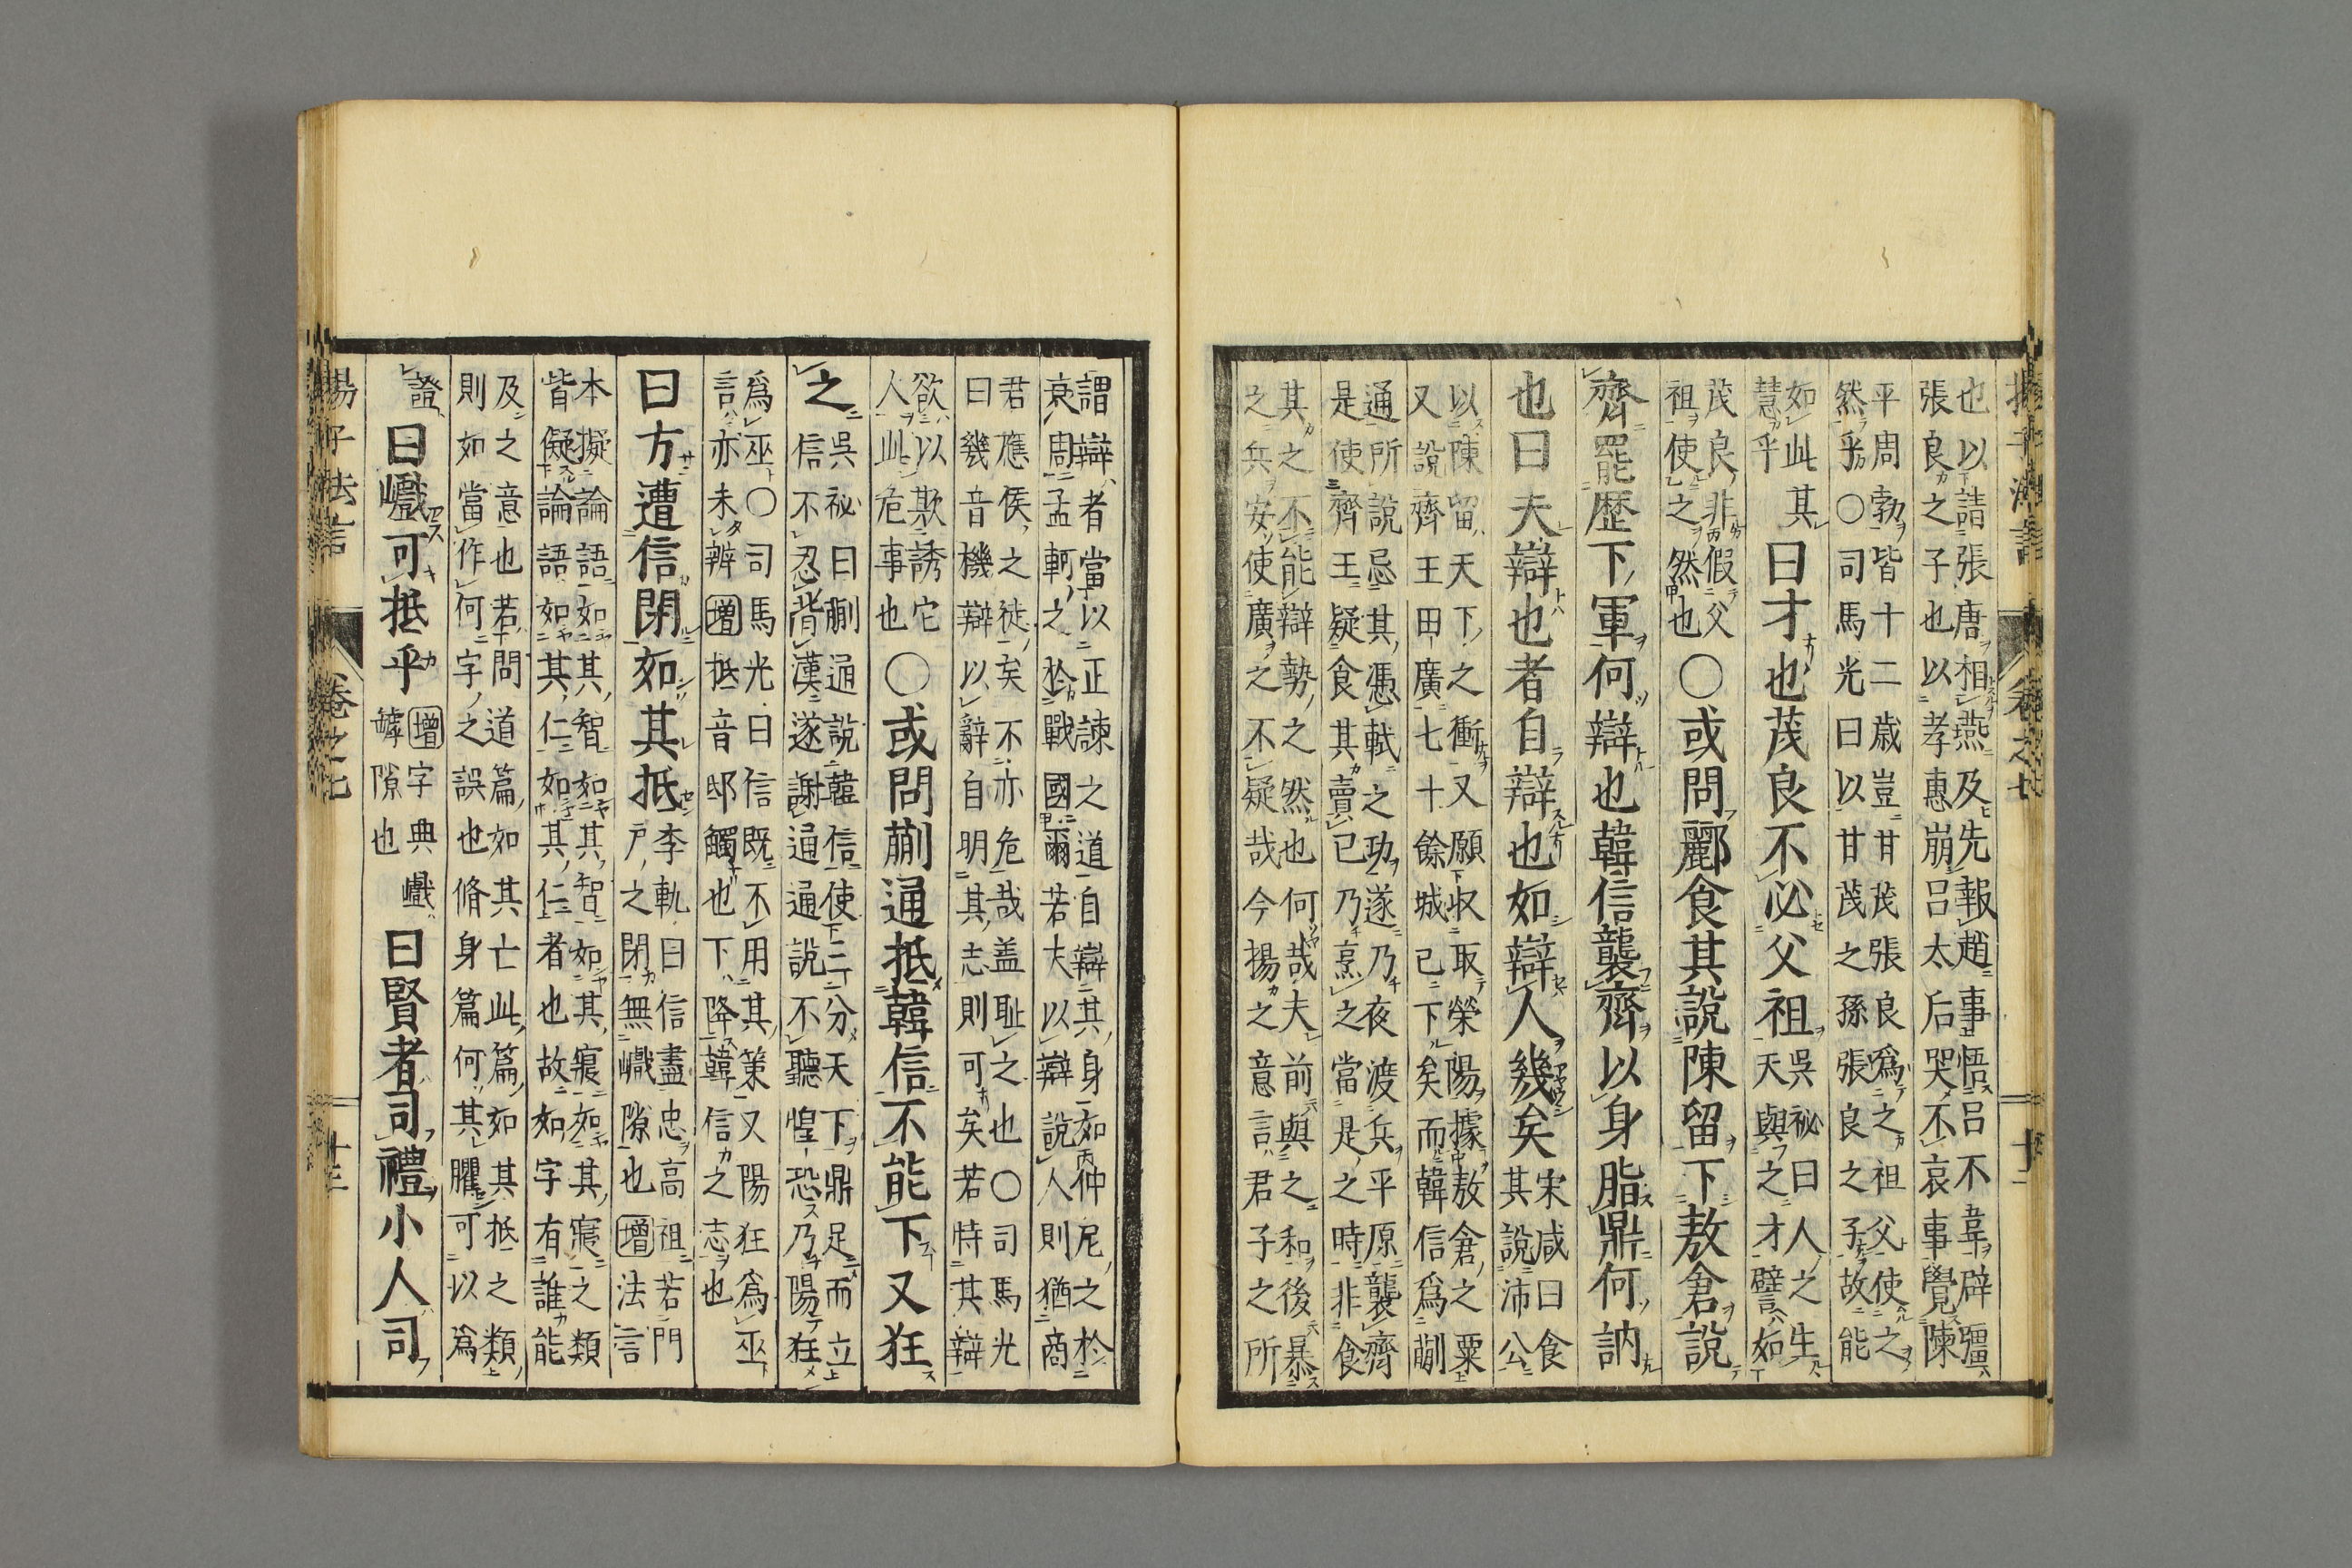 揚子法言 卷之七 十二
也以詰張唐相燕及先報趙事悟呂不韋辟彊
張良之子也以孝惠崩呂太后哭不哀事覺陳
平周勃皆十二歳豈甘茂張良爲之祖父使之
然乎〇司馬光曰以甘茂之孫張良之子故能
如此其
慧乎
曰才也茂良不必父祖
吳祕曰人之生
天與之才譬如
茂良非假父
祖使之然也
〇或問酈食其說陳留下敖倉說
齊罷歷下軍何辯也韓信襲齊以身脂鼎何訥
也曰夫辯也者自辯也如辯人幾矣
宋咸曰食
其說沛公
以陳留天下之衝又願収取榮陽據敖倉之粟
又說齊王田廣七十餘城已下矣而韓信爲蒯
通所說忌其憑軾之功遂乃夜渡兵平原襲齊
是使齊王疑食其賣已乃烹之當是之時非食
其之不能辯勢之然也何哉夫前與之和後暴
之兵安使廣之不疑哉今揚之意言君子之所
謂辯者當以正諫之道自辯其身如仲尼之於
衰周孟軻之於戰國爾若夫以辯說人則猶商
君應侯之徒矣不亦危哉盖耻之也〇司馬光
曰幾音機辯以辭自明其志則可矣若特其辯
欲以欺誘它
人此危事也
〇或問蒯通抵韓信不能下又狂
之
吳祕曰蒯通說韓信使三分天下鼎足而立
信不忍背漢遂謝通通說不聽惶恐乃陽狂
爲巫〇司馬光曰信既不用其策又陽狂爲巫
言亦未辨增抵音邸觸也下降韓信之志也
曰方遭信閉如其抵
李軌曰信盡忠高祖若門
戶之閉無巇隙也增法言
本擬論語如其智如其智如其寢如其寢之類
皆儗論語如其仁如其仁者也故如字有誰能
及之意也若問道篇如其亡此篇如其抵之類
則如當作何字之誤也脩身篇何其臞可以爲
證
曰巇可抵乎
增字典巇
罅隙也
曰賢者司禮小人司
揚子法言 卷之七 十二